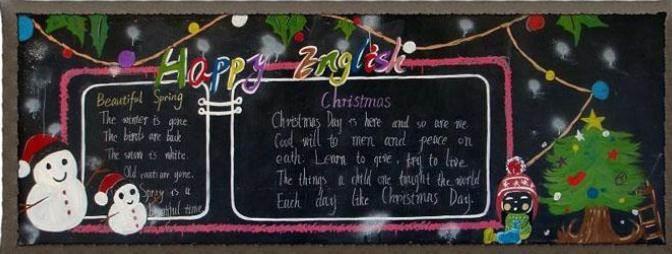 Happy English
Beautiful Spring
The winter is gone
The birds are back
The swan is white
Old coats are gone.
Spray is a
beautiful time
Christmas
Christmas Day is here and so are we
Good will to men and peace on
eath. Learn to give, try to live
The things a child one taught the world
Each day like Christmas Day.